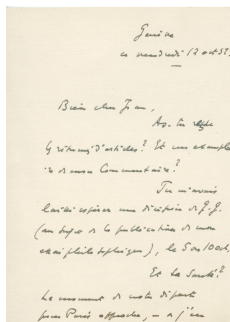 Genève
ce vendredi 12 oct 52,
Bien cher Jean,
As-tu reçu
d'articles? Et un exemplai
re de mon Commentaire?
Tu m'avais
laissé espérer une décision de G.G.
(au sujet de la publication de mon
), le 5 ou 10 Oct.
Et ta santé?
Le moment de notre départ
pour Paris approche,